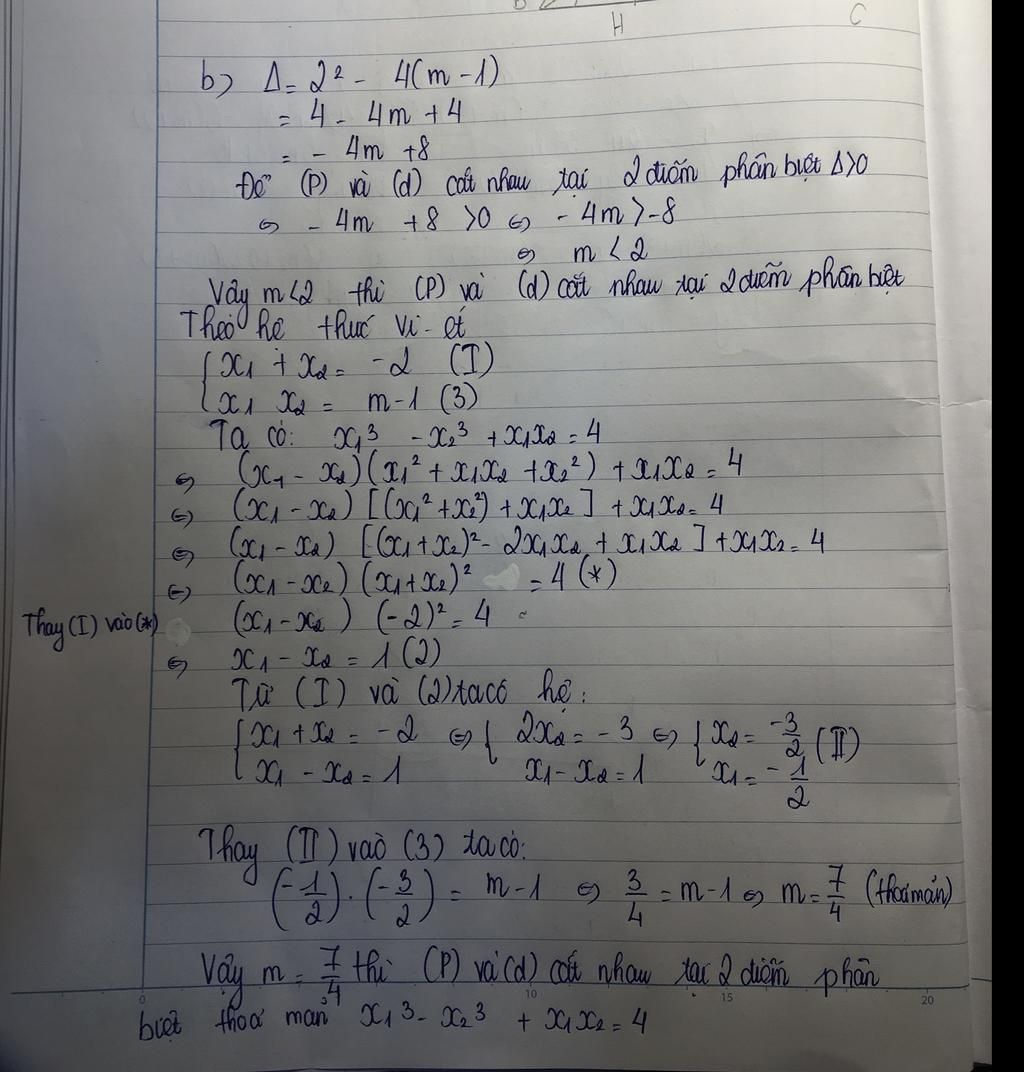 H C
b) Δ = 2² - 4(m - 1)
= 4 - 4m + 4
= - 4m + 8
Để (P) và (d) cắt nhau tại 2 điểm phân biệt Δ>0
⇔ - 4m + 8 >0 ⇔ - 4m > -8
⇔ m < 2
Vậy m<2 thì (P) và (d) cắt nhau tại 2 điểm phân biệt
Theo hệ thức Vi-ét
{ x₁ + x₂ = -2 (I)
x₁ x₂ = m-1 (3)
Ta có: x₁³ - x₂³ + x₁x₂ = 4
⇔ (x₁ - x₂)(x₁² + x₁x₂ + x₂²) + x₁x₂ = 4
⇔ (x₁ - x₂) [(x₁² + x₂²) + x₁x₂] + x₁x₂ = 4
⇔ (x₁ - x₂) [(x₁ + x₂)² - 2x₁x₂ + x₁x₂] + x₁x₂ = 4
⇔ (x₁ - x₂) (x₁ + x₂)² = 4 (*)
Thay (I) vào (*) (x₁ - x₂) (-2)² = 4
⇔ x₁ - x₂ = 1 (2)
Từ (I) và (2) ta có hệ:
{ x₁ + x₂ = -2 ⇔ { 2x₂ = -3 ⇔ { x₂ = -3/2 (II)
x₁ - x₂ = 1 x₁ - x₂ = 1 x₁ = -1/2
Thay (II) vào (3) ta có:
(-1/2) . (-3/2) = m-1 ⇔ 3/4 = m-1 ⇔ m = 7/4 (thoả mãn)
Vậy m = 7/4 thì (P) và (d) cắt nhau tại 2 điểm phân
0 10 15 20
biệt thoả mãn x₁³ - x₂³ + x₁x₂ = 4